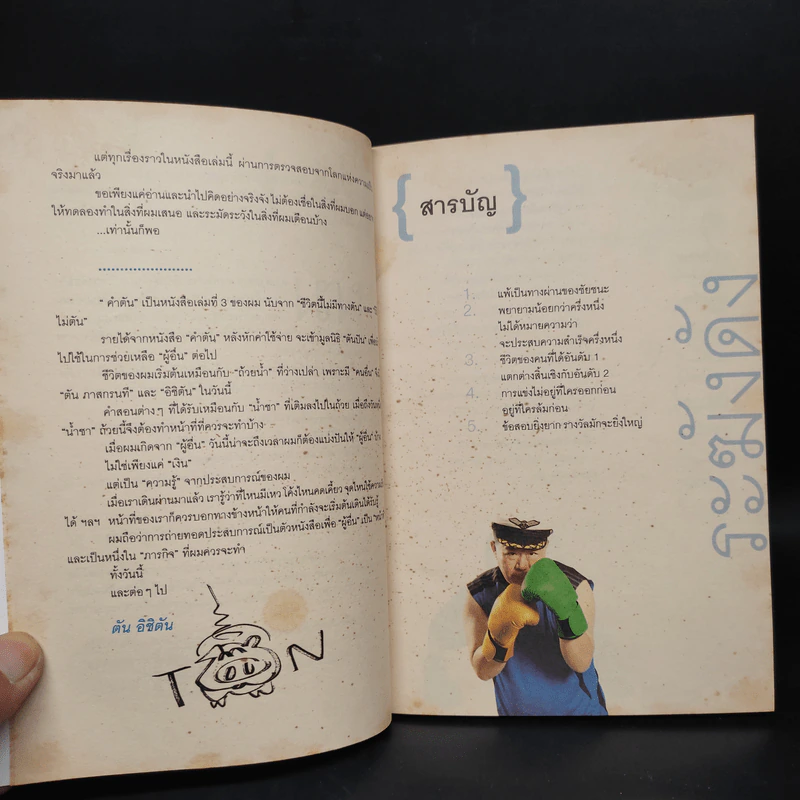 แต่ทุกเรื่องราวในหนังสือเล่มนี้ ผ่านการตรวจสอบจากโลกแห่งความ
จริงมาแล้ว
ขอเพียงแค่อ่านและนำไปคิดอย่างจริงจัง ไม่ต้องเชื่อในสิ่งที่ผมบอก
ให้ทดลองทำในสิ่งที่ผมเสนอ และระมัดระวังในสิ่งที่ผมเตือนบ้าง
...เท่านั้นก็พอ
.......................
"คำตัน" เป็นหนังสือเล่มที่ 3 ของผม นับจาก "ชีวิตนี้ไม่มีทางตัน" และ
ไม่ตัน"
รายได้จากหนังสือ "คำตัน" หลังหักค่าใช้จ่าย จะเข้ามูลนิธิ "ตันปัน"
ไปใช้ในการช่วยเหลือ "ผู้อื่น" ต่อไป
ชีวิตของผมเริ่มต้นเหมือนกับ "ถ้วยน้ำ" ที่ว่างเปล่า เพราะมี "คนอื่น"
"ตัน ภาสกรนที" และ "อิชิตัน" ในวันนี้
คำสอนต่างๆ ที่ได้รับเหมือนกับ "น้ำชา" ที่เติมลงไปในถ้วย เมื่อถึงวัน
"น้ำชา" ถ้วยนี้จึงต้องทำหน้าที่ที่ควรจะทำบ้าง
เมื่อผมเกิดจาก "ผู้อื่น" วันนี้น่าจะถึงเวลาผมก็ต้องแบ่งปันให้ "ผู้อื่น"
ไม่ใช่เพียงแค่ "เงิน"
แต่เป็น "ความรู้" จากประสบการณ์ของผม
เมื่อเราเดินผ่านมาแล้ว เรารู้ว่าที่ไหนมีเหว โค้งไหนคดเคี้ยว จุดไหนใช้
ได้ ฯลฯ หน้าที่ของเราก็ควรบอกทางข้างหน้าให้คนที่กำลังจะเริ่มต้นเดินได้รับรู้
ผมถือว่าการถ่ายทอดประสบการณ์เป็นตัวหนังสือเพื่อ "ผู้อื่น" เป็น
และเป็นหนึ่งใน "ภารกิจ" ที่ผมควรจะทำ
ทั้งวันนี้
และต่อๆ ไป
ตัน อิชิตัน
T N
{สารบัญ}
1. แพ้เป็นทางผ่านของชัยชนะ
2. พยายามน้อยกว่าครึ่งหนึ่ง
ไม่ได้หมายความว่า
จะประสบความสำเร็จครึ่งหนึ่ง
3. ชีวิตของคนที่ได้อันดับ 1
แตกต่างสิ้นเชิงกับอันดับ 2
4. การแข่งไม่อยู่ที่ใครออกก่อน
อยู่ที่ใครล้มก่อน
5. ข้อสอบยิ่งยาก รางวัลมักจะยิ่งใหญ่
ระฆังดัง